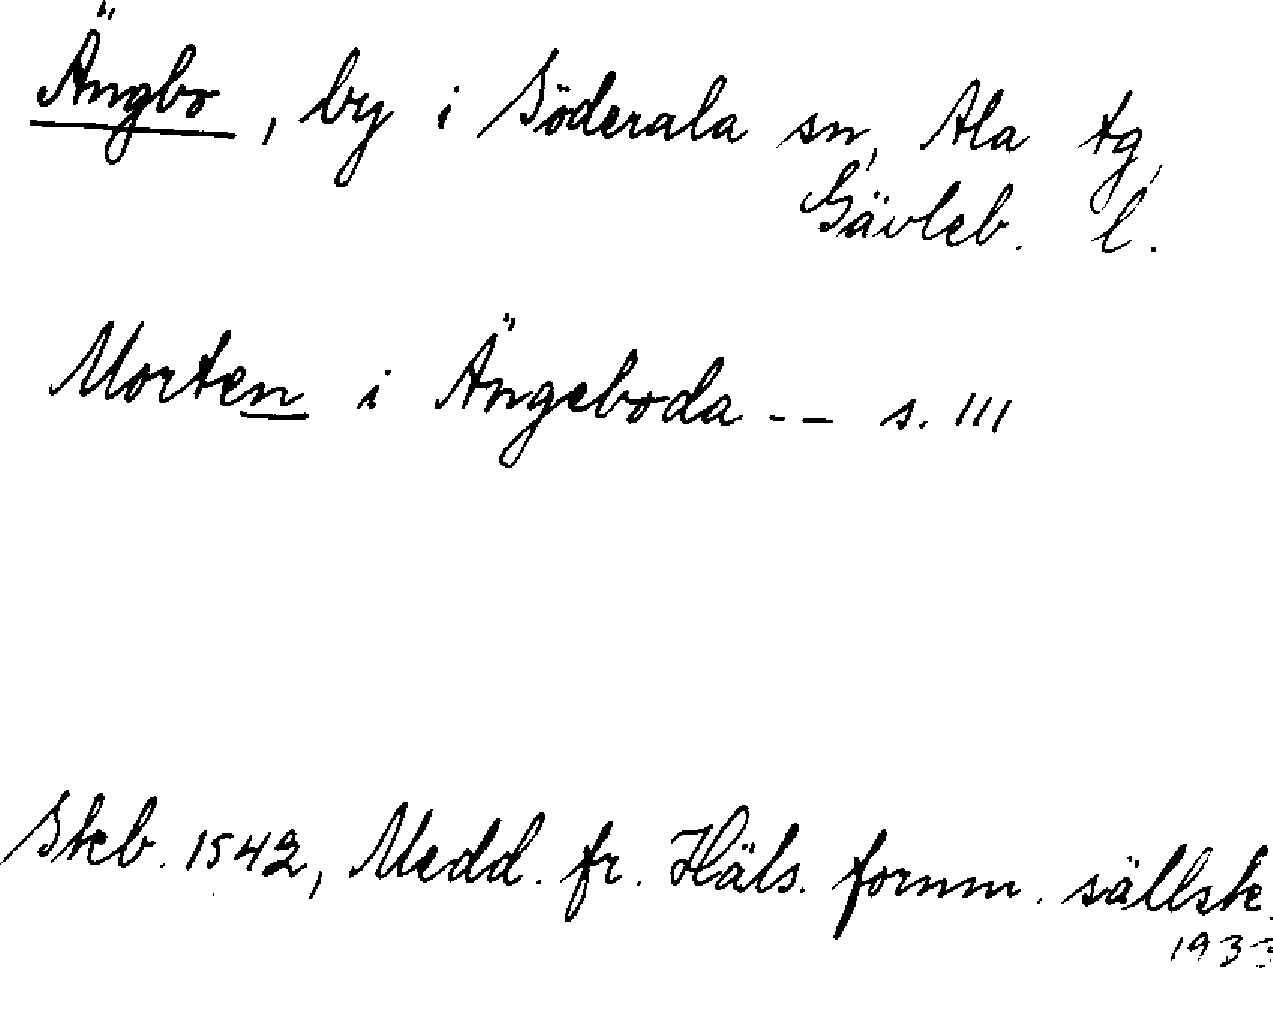 Ängbo, by i Söderala sn, Ala tg,
Gävleb. l.
Morten i Ängeboda - - s. 111
Skb. 1542, Medd. fr. Häls. fornm. sällsk.
1933